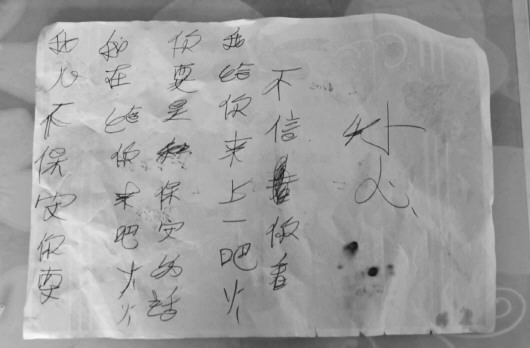 心
不信你看
我给你来上一吧火
你要是保安的话
我在给你来吧大火
此火不保安你要